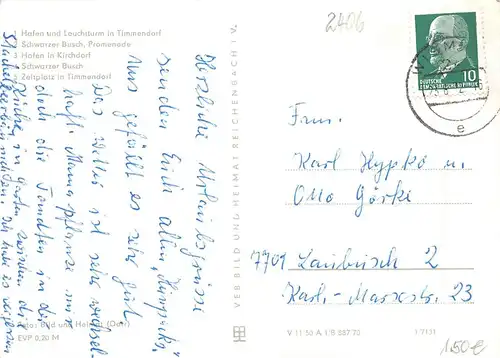 1 Hafen und Leuchtturm in Timmendorf
2 Schwarzer Busch, Promenade
3 Hafen in Kirchdorf
4 Schwarzer Busch
5 Zeltplatz in Timmendorf
Herzliche Urlaubsgrüsse
senden Euch allen
Uns gefällt es sehr gut
Das Wetter ist sehr wechsel-
haft. Mama pflanze mir
doch die Tomaten in die
Foto: Bild und Heimat
EVP 0,20 M
VEB BILD UND HEIMAT REICHENBACH I. V.
2406
DEUTSCHE
DEMOKRATISCHE REPUBLIK
10
e
Fam.
Karl Hypko u.
Otto Görki
7701 Laubusch 2
Karl-Marxstr. 23
V 11 50 A 1/B 587/70
1,50€